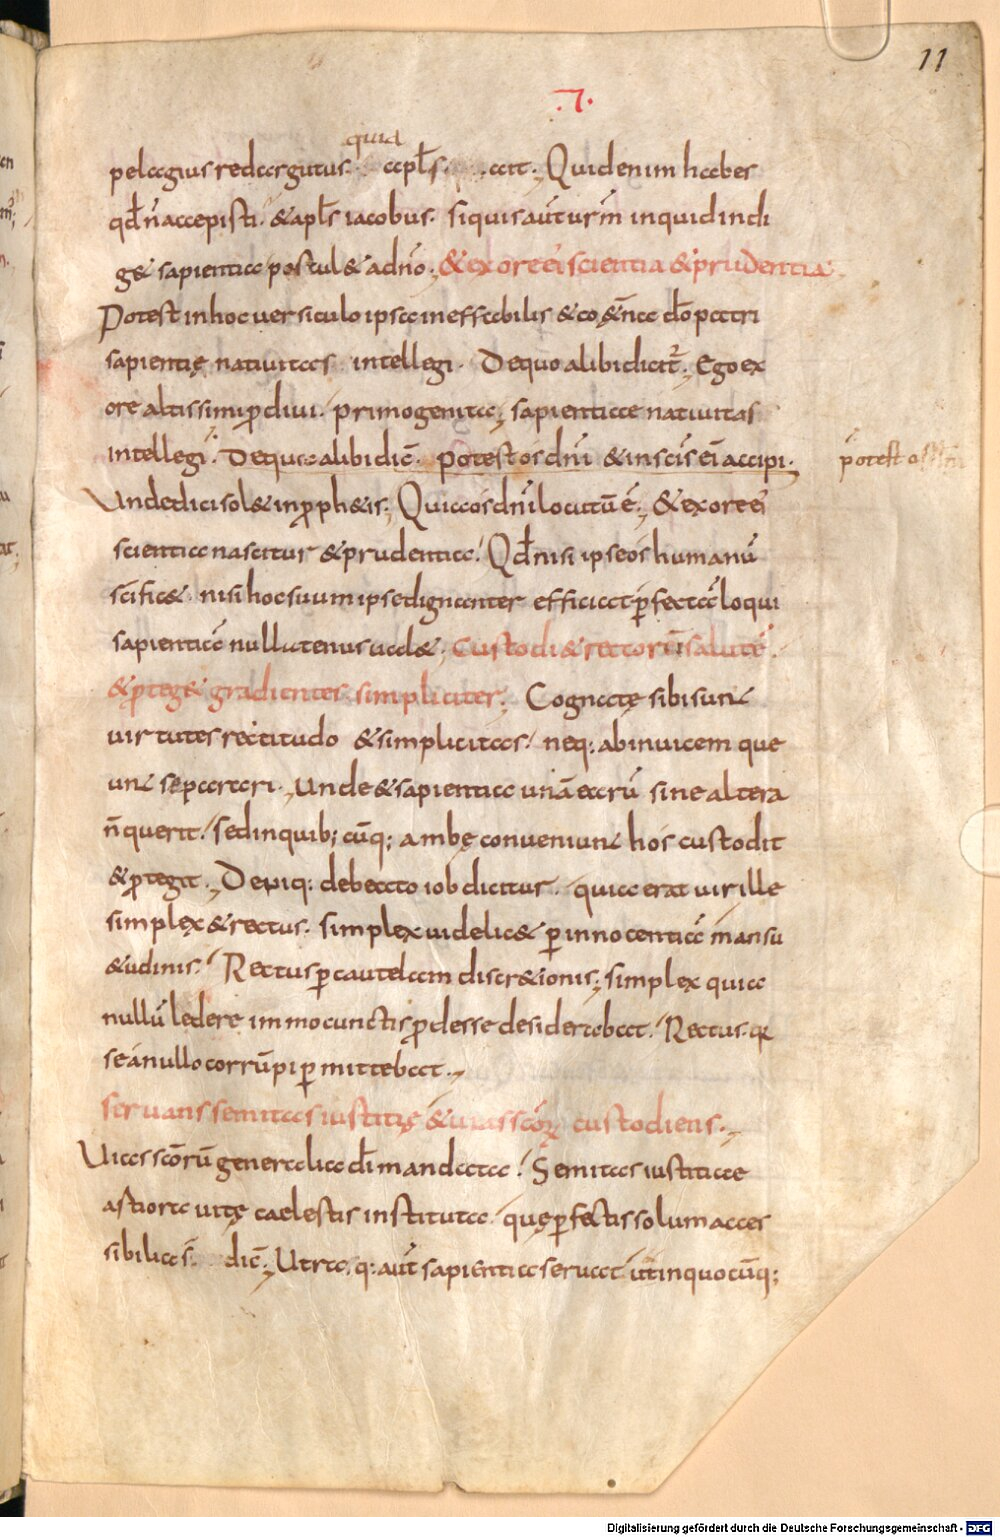 11
.7.
quid
pelagius redargutus. apl̅s ait. Quid enim habes
qd̅ n̅ accepisti. & apl̅s iacobus. si quis aut̅ ur̅m inquid indi
g& sapientia postul& a dn̅o. & ex ore ei' scientia & prudentia
Potest in hoc versiculo ipsa ineffabilis & co&n̅a do̅ patri
sapientię nativitas intellegi. De quo alibi dicit̅. Ego ex
ore altissimi ꝓdivi. primogenita. sapientiae nativitas
intellegi. De qua alibi dic̅. potest os dn̅i & in sc̅is ei' accipi.
potest os dn̅i
Unde dici sol& in ꝓph&is. Quia os dn̅i locutu̅ e̅. & ex ore ei'
scientia nascitur & prudentia. Qd̅ nisi ipse os humanu̅
sc̅ific&. nisi hoc suum ipse dignanter efficiat ꝑfecta̅ loqui
sapientia̅ nullatenus vad&. Custodi& rectoru̅ salute̅
& ꝓteg& gradientes simpliciter. Cognatę sibi sunt
virtutes rectitudo & simplicitas. neq: ab invicem que
unt separari. Unde & sapientia una̅ earu̅ sine altera
n̅ querit. sed in quib; cu̅q; ambę conveniunt hos custodit
& ꝓtegit. Deniq: de beato iob dicitur. quia erat vir ille
simplex & rectus. simplex videlic& ꝑ innocentia̅ mansu
&udinis. Rectus ꝑ cautelam discr&ionis. simplex quia
nullu̅ ledere immo cunctis ꝓdesse desiderabat. Rectus. q
se a nullo corru̅pi ꝑmittebat.
servans semitas iustitię & vias sc̅oꝝ custodiens.
Vias sc̅oru̅ generalia di̅ mandata. Semitas iustitiae
astiora vitę caelestis instituta. quę ꝑfectis solum acces
sibilia s̅. dic̅. Utra.q: aut̅ sapientia servat ut in quocu̅q;
Digitalisierung gefördert durch die Deutsche Forschungsgemeinschaft - DFG